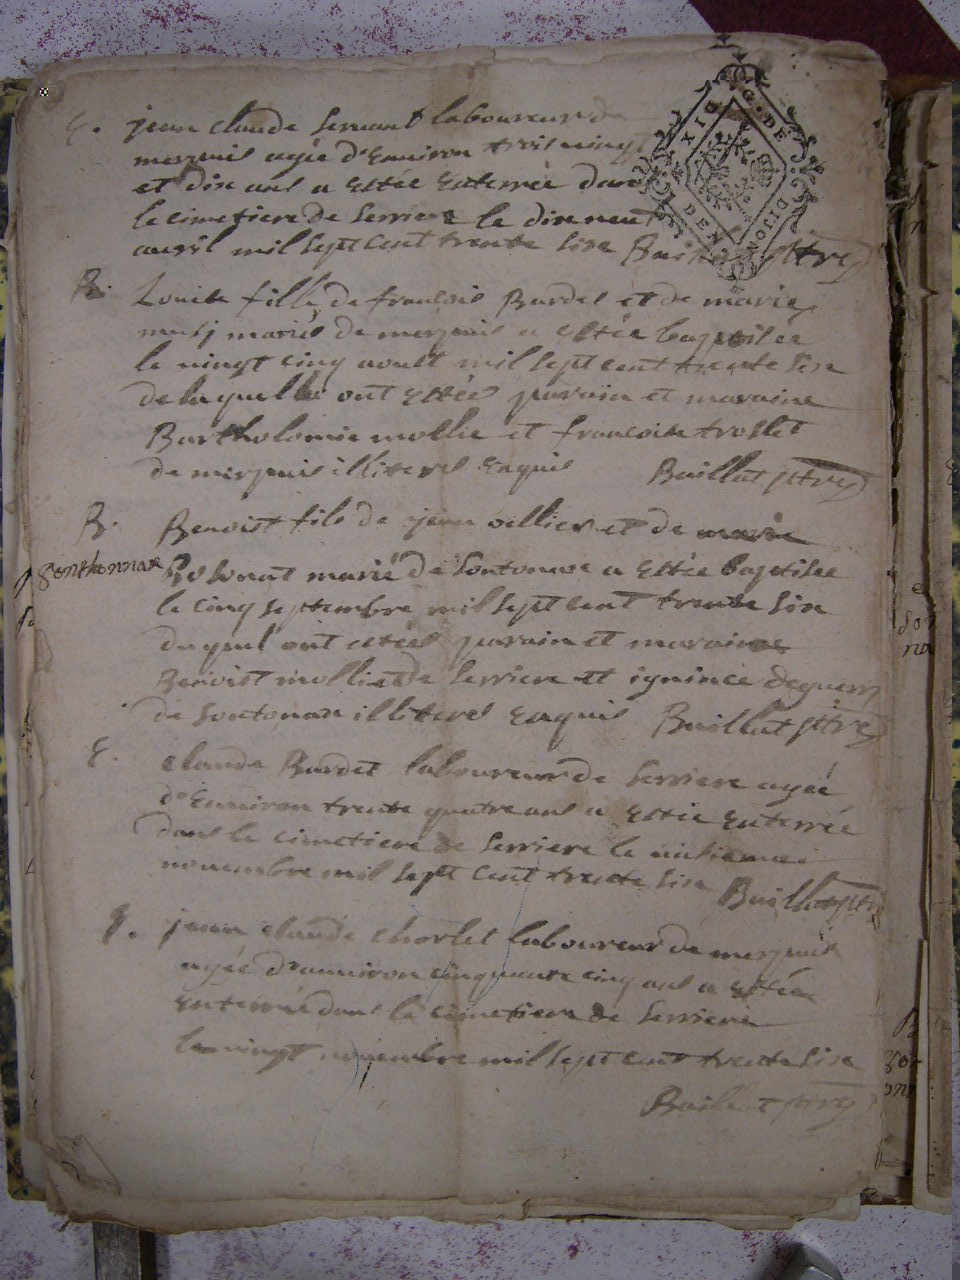 E. jean claude Servant laboureur de
merpuis agée d'Enuiron trois uingt
et dix ans a Estée Enterrée dans
le cimetiere de Serriere le dixneuf
auril mil sept cent trente sixe Baillat ptre
B. Louise fille de francois Bardet et de marie
mariés de merpuis a Estée baptisée
le uingt cinq aoult mil sept cent trente sixe
de laquelle ont Estées parain et maraine
Bartholomie mollie et francoise trollet
de merpuis illiteres Enquis Baillat ptre
B. Benoist fils de jean uellier et de marie
gonthonnax Bosonat marié de Sontonax a Estée baptisée
le cinq septembre mil sept cent trente sixe
duquel ont estées parain et maraine
Benoist molliet de Serriere et
de Sontonax illiteres Enquis Baillat ptre
E. claude Bardet laboureur de Serriere agée
d'Enuiron trente quatre ans a Estée Enterrée
dans le cimetiere de Serriere le
nouembre mil sept cent trente sixe Baillat ptre
E. jean claude Chorlet laboureur de merpuis
agée d'enuiron cinquante cinq ans a Estée
Enterrée dans le cimetiere de Serriere
le uingt nouembre mil sept cent trente sixe
Baillat ptre
G. DE DIJON
DEN